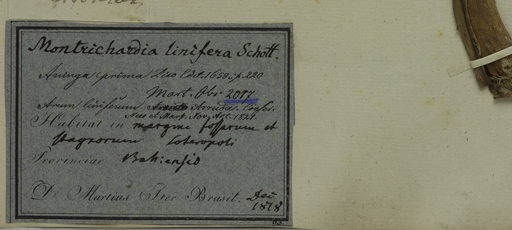 Montrichardia linifera Schott.
Aninga (prima) Piso Edit. 1658. p. 220
Mart. Obs. 2077
Arum liniferum Arruda.
Nov. Act. 1831.
Habitat in margine fossarum et
stagnorum Soteropoli
Provinciae Bahiensis
D. Martius Iter Brasil. Dec
1818